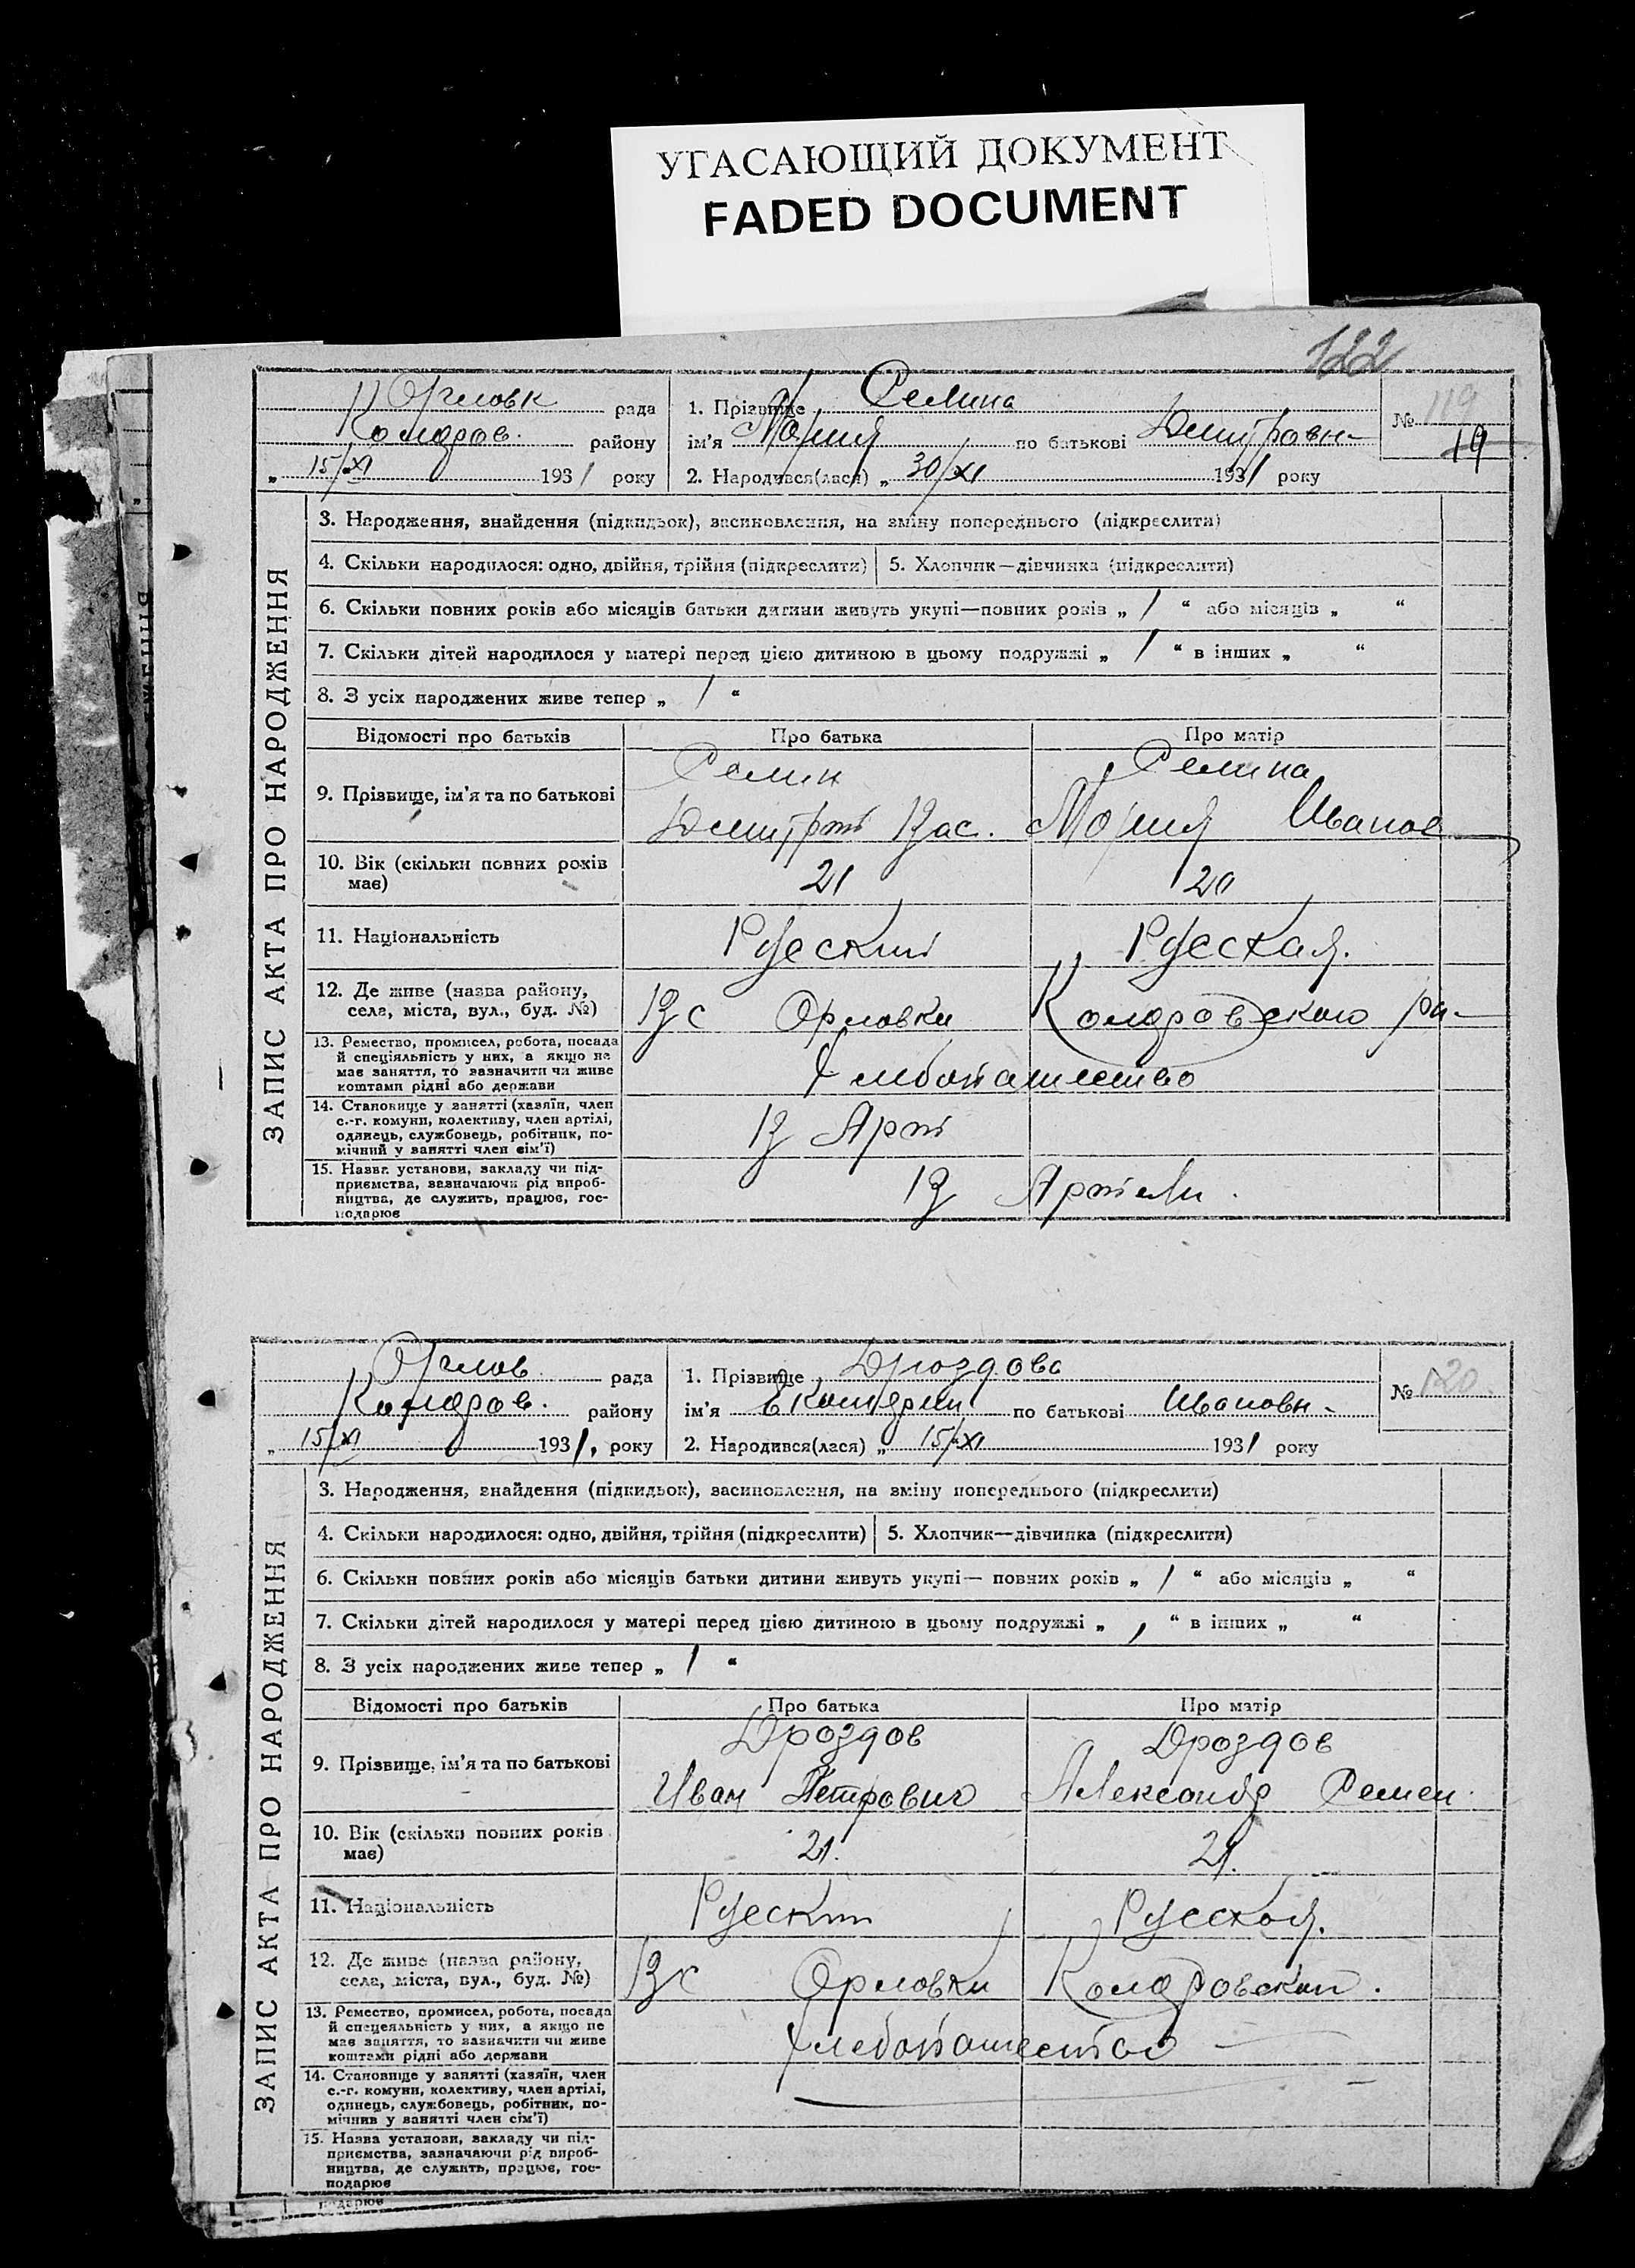 УГАСАЮЩИЙ ДОКУМЕНТ
FADED DOCUMENT
122
Орловк рада
Коларов. району
„ 15/XI 1931 року
1. Прізвище Селина
ім'я Мария по батькові Дмитровн-
2. Народився(лася) „ 30/XI 1931 року
№ 119
19
ЗАПИС АКТА ПРО НАРОДЖЕННЯ
3. Народження, знайдення (підкидьок), засиновлення, на зміну попереднього (підкреслити)
4. Скільки народилося: одно, двійня, трійня (підкреслити) 5. Хлопчик—дівчинка (підкреслити)
6. Скільки повних років або місяців батьки дитини живуть укупі—повних років „ 1 “ або місяців „ “
7. Скільки дітей народилося у матері перед цією дитиною в цьому подружжі „ 1 “ в інших „ “
8. З усіх народжених живе тепер „ 1 “
Відомості про батьків Про батька Про матір
9. Прізвище, ім'я та по батькові
Селин
Дмитрий Вас.
Селина
Мария Иванов
10. Вік (скільки повних років
має)
21 20
11. Національність Руский Руская.
12. Де живе (назва району,
села, міста, вул., буд. №)
В с Орловки Коларовского ра-
13. Ремество, промисел, робота, посада
й спеціяльність у них, а якщо не
має заняття, то зазначити чи живе
коштами рідні або держави
Хлебопашество
14. Становище у занятті (хазяїн, член
с.-г. комуни, колективу, член артілі,
одинець, службовець, робітник, по-
мічний у занятті член сім'ї)
В Арт
15. Назва установи, закладу чи під-
приємства, зазначаючи рід вироб-
ництва, де служить, працює, гос-
подарює
В Артели.
Орлов рада
Коларов. району
„ 15/XI 1931, року
1. Прізвище Дроздова
ім'я Екатерин по батькові Ивановн-
2. Народився(лася) „ 15/XI 1931 року
№ 120.
ЗАПИС АКТА ПРО НАРОДЖЕННЯ
3. Народження, знайдення (підкидьок), засиновлення, на зміну попереднього (підкреслити)
4. Скільки народилося: одно, двійня, трійня (підкреслити) 5. Хлопчик—дівчинка (підкреслити)
6. Скільки повних років або місяців батьки дитини живуть укупі— повних років „ 1 “ або місяців „ “
7. Скільки дітей народилося у матері перед цією дитиною в цьому подружжі „ 1 “ в інших „ “
8. З усіх народжених живе тепер „ 1 “
Відомості про батьків Про батька Про матір
9. Прізвище, ім'я та по батькові
Дроздов
Иван Петрович
Дроздов
Александр Семен.
10. Вік (скільки повних років
має)
21. 21.
11. Національність Руский Русская.
12. Де живе (назва району,
села, міста, вул., буд. №)
В с Орловки Коларовский.
13. Ремество, промисел, робота, посада
й спецеяльність у них, а якщо не
має заняття, то зазначити чи живе
коштами рідні або держави
Хлебопашество
14. Становище у занятті (хазяїн, член
с.-г. комуни, колективу, член артілі,
одинець, службовець, робітник, по-
мічнив у занятті член сім'ї)
15. Назва установи, закладу чи під-
приємства, зазначаючи рід вироб-
ництва, де служить, працює, гос-
подарює
подарює